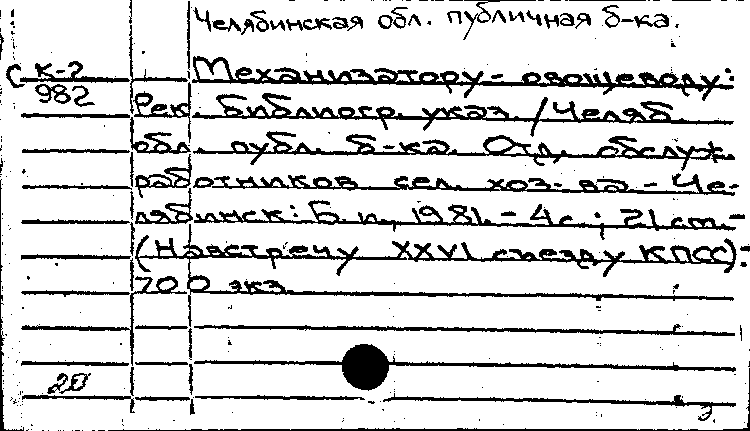 Челябинская обл. публичная б-ка.
С К-2 Механизатору - овощеводу:
982 Рек. библиогр. указ. / Челяб.
обл. публ. б-ка. Отд. обслуж.
работников сел. хоз-ва - Че-
лябинск: Б. и., 1981. - 4с.; 21 cm. -
(Навстречу XXVI съезду КПСС). -
700 экз.
20